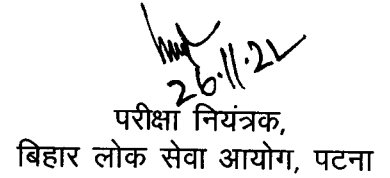 26.11.22
परीक्षा नियंत्रक,
बिहार लोक सेवा आयोग, पटना